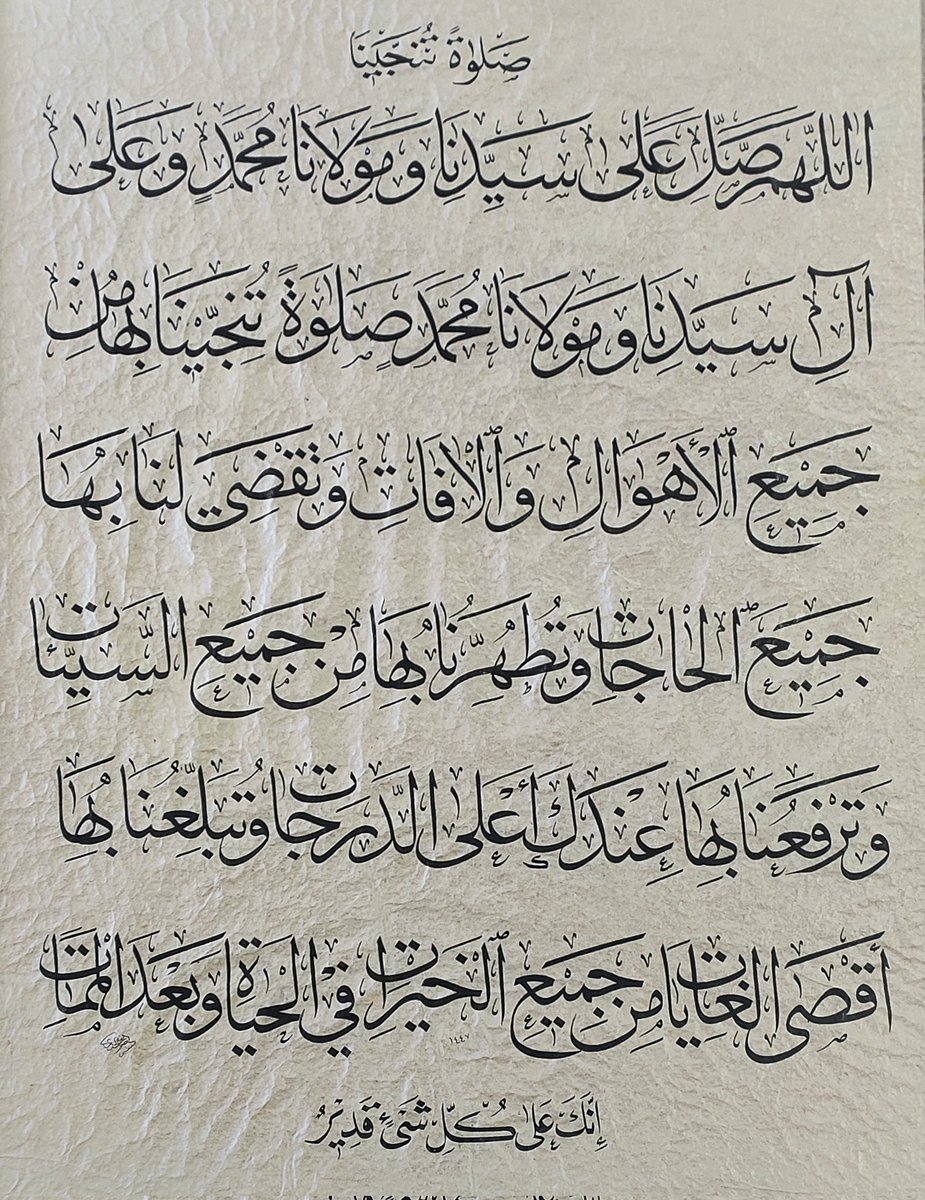 صَلٰوةً تُنْجِّينَا
اَللّٰهُمَّ صَلِّ عَلٰى سَيِّدِنَا وَمَوْلَانَا مُحَمَّدٍ وَعَلٰى
آلِ سَيِّدِنَا وَمَوْلَانَا مُحَمَّدٍ صَلٰوةً تُنْجِّينَا بِهَا مِنْ
جَمِيْعِ ٱلْأَهْوَالِ وَٱلْآفَاتِ وَتَقْضِي لَنَا بِهَا
جَمِيْعَ الْحَاجَاتِ وَتُطَهِّرُنَا بِهَا مِنْ جَمِيْعِ السَّيِّئَاتِ
وَتَرْفَعُنَا بِهَا عِنْدَكَ أَعْلَى الدَّرَجَاتِ وَتُبَلِّغُنَا بِهَا
أَقْصَى الْغَايَاتِ مِنْ جَمِيْعِ الْخَيْرَاتِ فِي الْحَيَاةِ وَبَعْدَ الْمَمَاتِ
١٤٤٧
إِنَّكَ عَلٰى كُلِّ شَيْءٍ قَدِيْرٌ